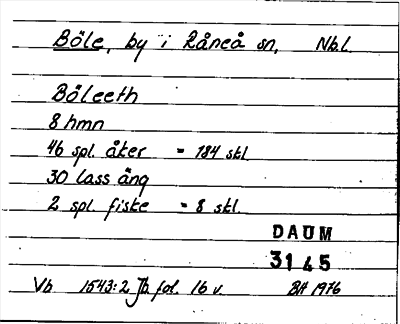 Böle, by i Råneå sn, Nbl.
Båleeth
8 hmn
46 spl. åker = 184 skl
30 lass äng
2 spl. fiske = 8 skl.
DAUM
3145
Vb 1543:2 Jb fol. 16 v. BH 1976